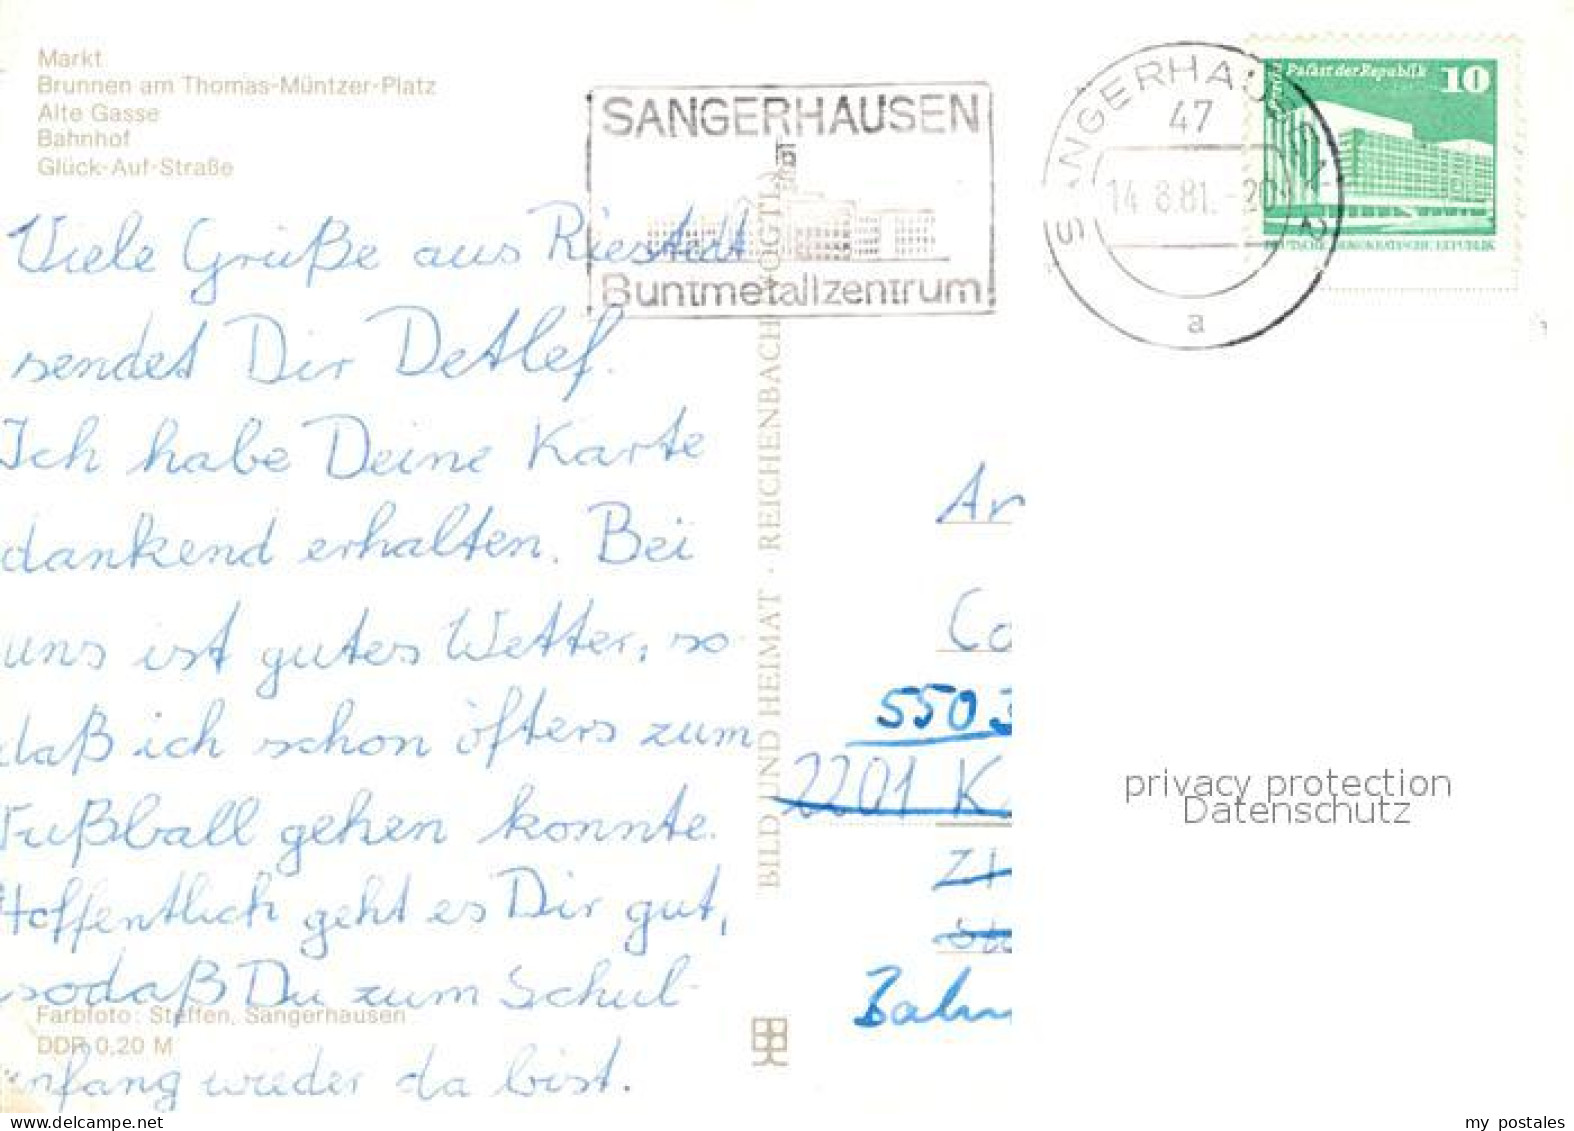 Markt
Brunnen am Thomas-Müntzer-Platz
Alte Gasse
Bahnhof
Glück-Auf-Straße
SANGERHAUSEN
Buntmetallzentrum
SANGERHAUSEN 2
47
14.8.81.-20
a
Palast der Republik 10
DEUTSCHE DEMOKRATISCHE REPUBLIK
Viele Grüße aus Riestedt
sendet Dir Detlef.
Ich habe Deine Karte
dankend erhalten. Bei
uns ist gutes Wetter, so
daß ich schon öfters zum
Fußball gehen konnte.
Hoffentlich geht es Dir gut,
sodaß Du zum Schul-
anfang wieder da bist.
Farbfoto: Steffen, Sangerhausen
DDR 0,20 M
BILD UND HEIMAT · REICHENBACH (VOGTL)
Ar
Co
5503
2201 K
Bahn
privacy protection
Datenschutz
my postales
www.delcampe.net